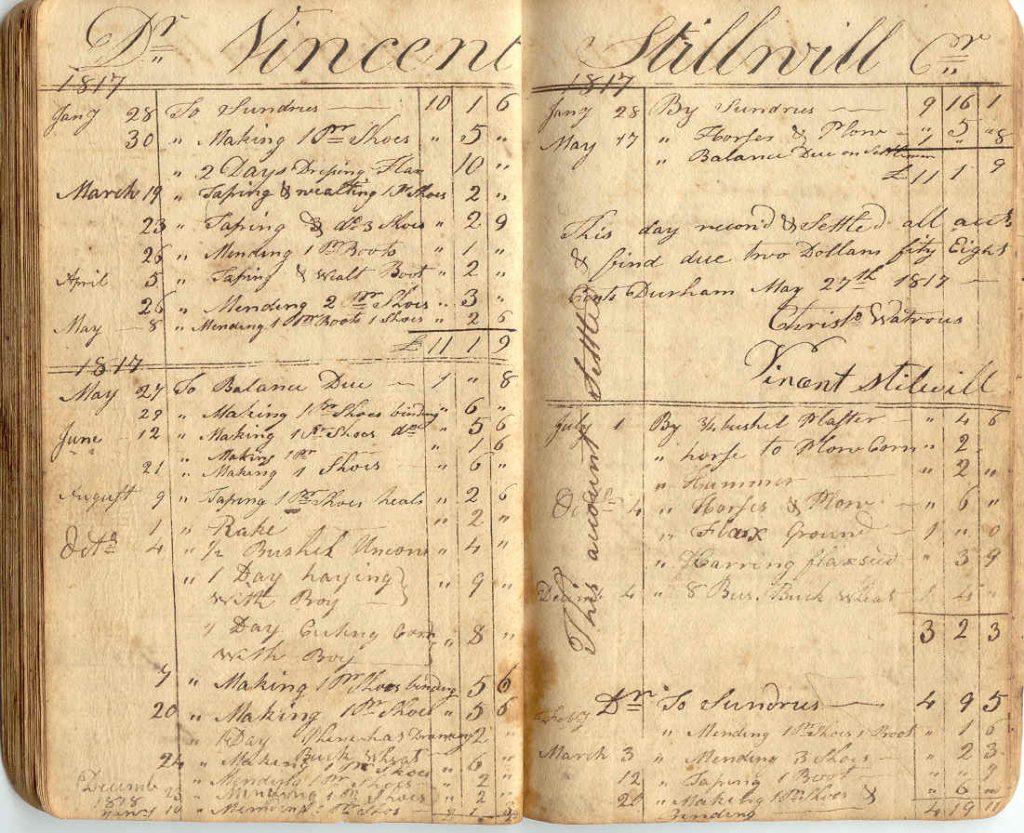 Dr Vincent Stillwill Cr
1817
Jany 28 To Sundries 10 1 6
30 " Making 1 Pr Shoes " 5 "
" 2 Days Dressing Flax 10 "
March 19 " Taping & wealting 1 Pr Shoes 2 "
23 " Taping & do 3 Shoes " 2 9
26 " Mending 1 Pr Boots " 1 "
April 5 " Taping & Wealt Boot " 2 "
26 " Mending 2 Pr Shoes " 3 "
May 8 " Mending 1 Pr Boots 1 Shoes " 2 6
£ 11 1 9
1817
May 27 To Balance Due 1 " 8
29 " Making 1 Pr Shoes binding " 6 "
June 12 " Making 1 Pr Shoes do " 5 6
" Making 1 Pr " 1 6
21 " Making 1 Shoes " 6 "
August 9 " Taping 1 Pr Shoes heals " 2 6
1 " Rake " 2 "
Octo 4 " ½ Bushel " 4 "
" 1 Day haying
With Boy " 9 "
" Day Cuting Corn
With Boy " 8 "
7 " Making 1 Pr Shoes binding 5 6
20 " Making 1 Pr Shoes " 5 6
" 1 Day 2 "
Buck Wheat
24 " Making 1 Pr Shoes " 6 "
Decemb " Mending 1 Pr Shoes " 2 "
25 " Mending 1 Pr Shoes " 2 "
1818
10 "
1817
Jany 28 By Sundries 9 16 1
May 17 " Horses & Plow " 5 "
" Balance Due on Settlemen 1 " 8
£ 11 1 9
This day recond & Settled all acts
& find due two Dollars fifty Eight
Cents Durham May 27th 1817
Christr Watrous
Vincent Stilwill
This account Settled
July 1 By ¾ bushel Plaster " 4 6
" horse to Plow Corn " 2 "
" Hummer " 2 "
Octo 4 " Horses & Plow " 6 "
" Flax Ground 1 " 0
" Harring flaxseed " 3 9
Decemb 4 " 8 Bus. Buck Wheat 1 4 "
3 2 3
Dr To Sundries 4 9 5
" Mending 1 Pr Shoes 1 Boot " 1 6
March 3 " Mending 3 Shoes " 2 3
12 " Taping 1 Boot " " 9
20 " Making 1 Pr Shoes & " 6 "
Binding 4 19 11